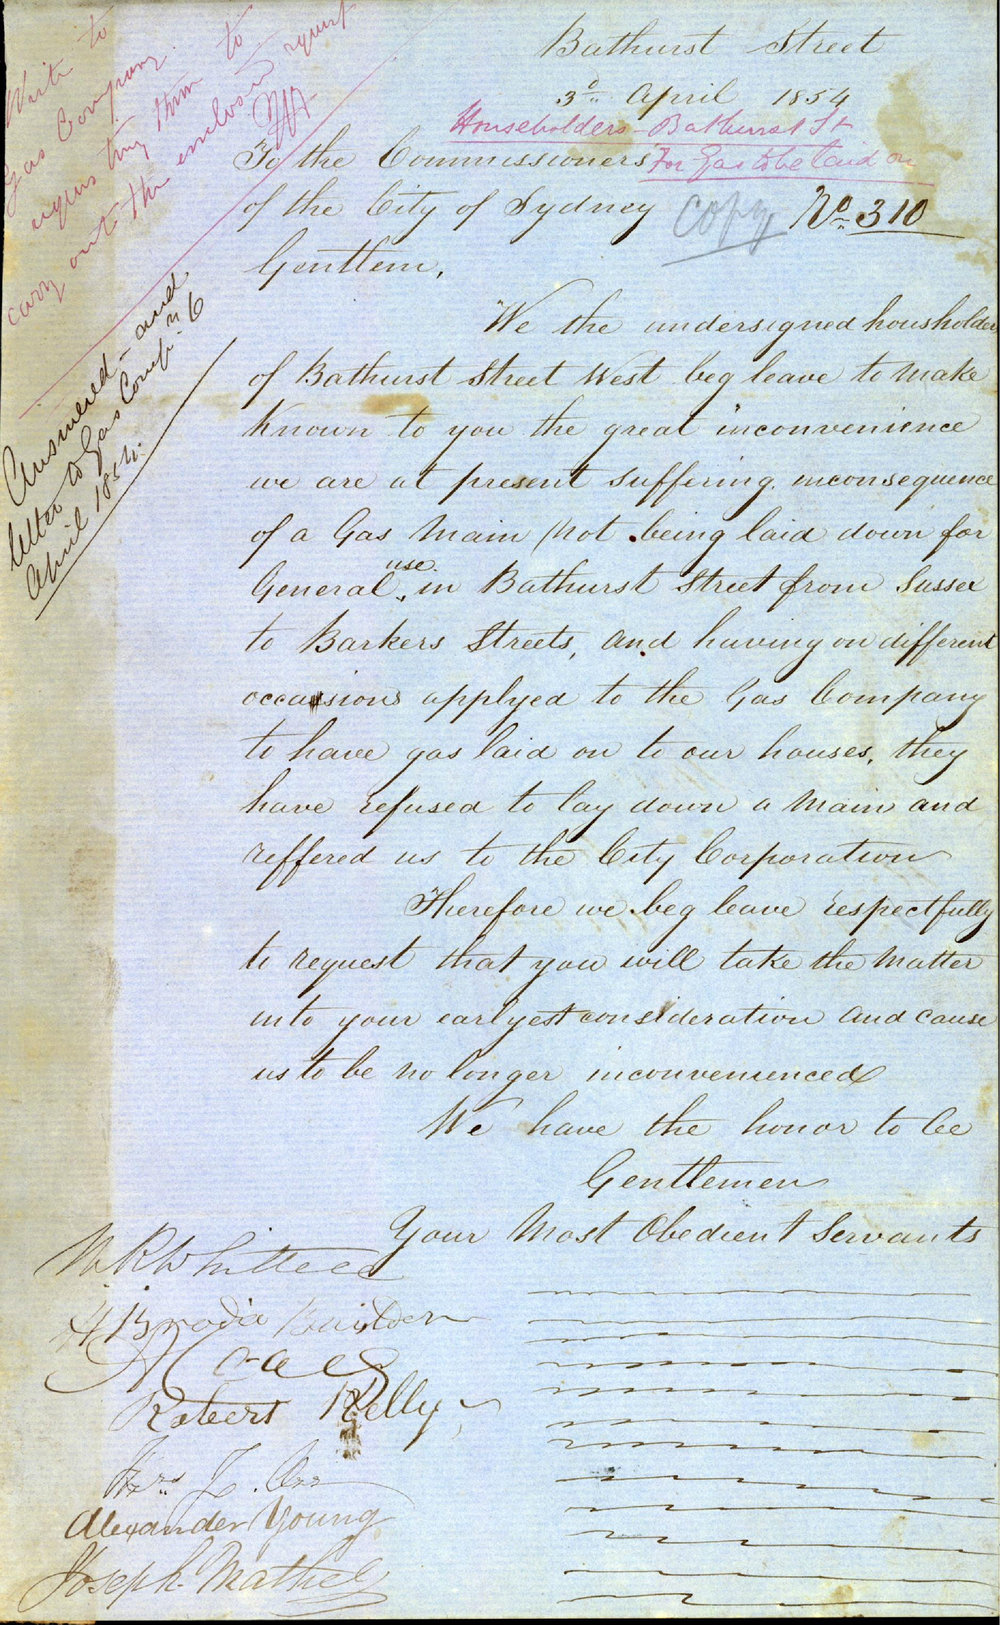 Write to
Gas Company
requesting them to
carry out the enclosed request
Answered - and
letter to Gas Comp.y 6
April 1854.
Bathurst Street
3d April 1854
Householders - Bathurst St
For Gas to be laid on
To the Commissioners
of the City of Sydney
Copy No 310
Gentlem,
We the undersigned housholders
of Bathurst Street West beg leave to make
Known to you the great inconvenience
we are at present suffering inconsequence
of a Gas Main not being laid down for
General use in Bathurst Street from Sussex
to Barkers Streets, and having on different
occassions applyed to the Gas Company
to have gas laid on to our houses, they
have refused to lay down a Main and
reffered us to the City Corporation
Therefore we beg leave respectfully
to request that you will take the Matter
into your earlyest consideration and cause
us to be no longer inconvenienced
We have the honor to be
Gentlemen
Your Most Obedient Servants
Builder
Robert Kelly
Orr
Alexander Young
Joseph